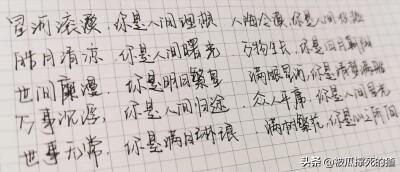 星河滚烫,你是人间理想 人海冷漠,你是人间炽热
皓月清凉,你是人间曙光 万物生长,你是旧日
世间糜漫,你是明日繁星 满眼星河,你是清梦
万事沉浮,你是人间归途 众人平庸,你是人间星光
世事无常,你是满目琳琅 满树繁花,你是心之所向
头条 @被瓜撑死的猹